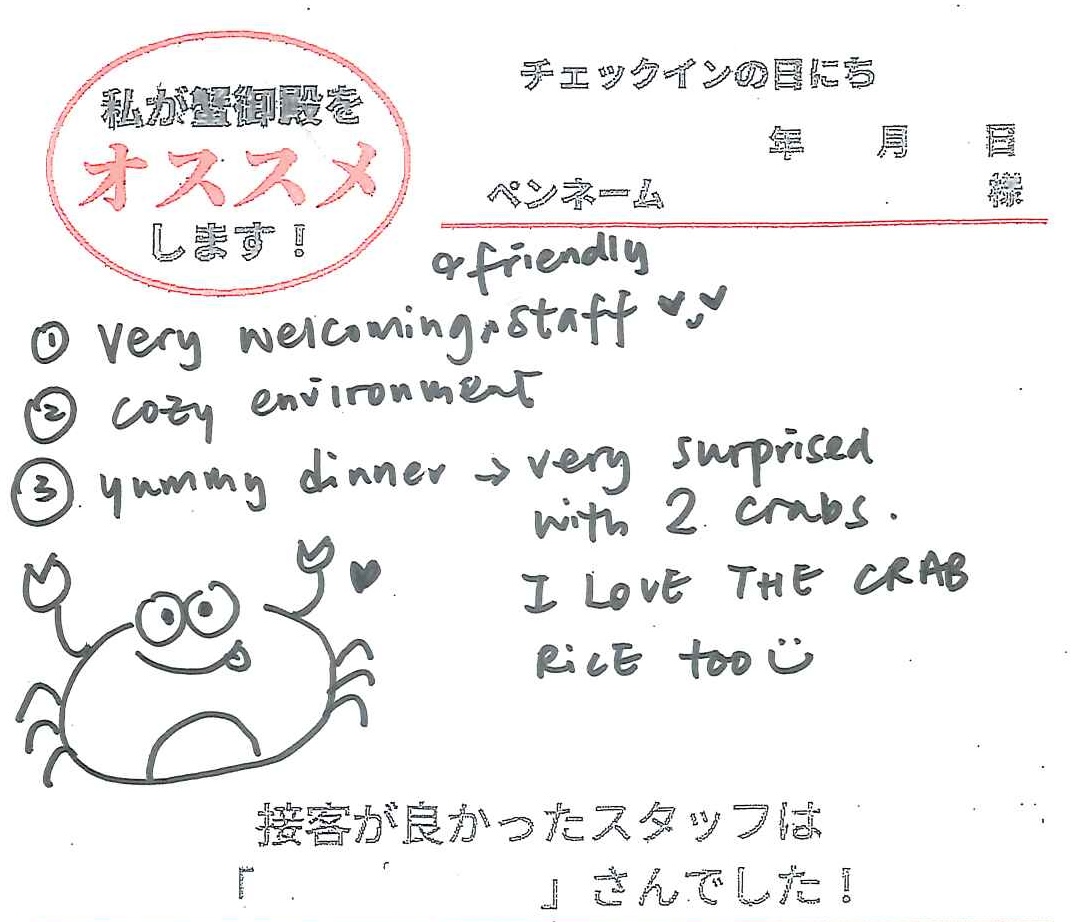 私が蟹御殿を
オススメ
します！
チェックインの日にち
年 月 日
ペンネーム 様
& friendly
① very welcoming, staff
② cozy environment
③ yummy dinner → very surprised
with 2 crabs.
I LOVE THE CRAB
RICE too
接客が良かったスタッフは
「 」さんでした！